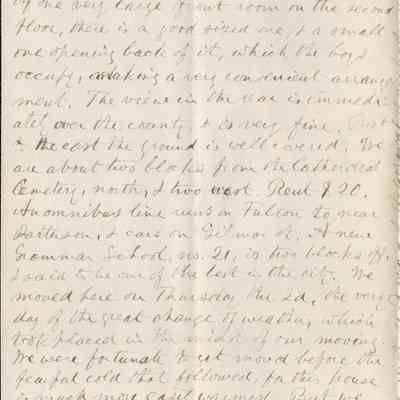 of one very large front room on the second
floor, there is a good sized one, & a small
one opening back of it, which the boys
occupy, making a very convenient arrange
ment. The view in the rear is immedi-
ately over the country, & is very fine. But
the east the ground is well covered. We
are about two blocks from the Cathedral
Cemetery, north, & two west. Rent $20.
An omnibus line runs on Fulton to near
Patterson, & cars on Gilmor St. A new
Grammar School, no. 21, is two blocks off,
& said to be one of the best in the city. We
moved here on Thursday the 2d, the very
day of the great change of weather, which
took placed in the midst of our moving.
We were fortunate to get moved before the
fearful cold that followed, for this house
is much more easily warmed. But we